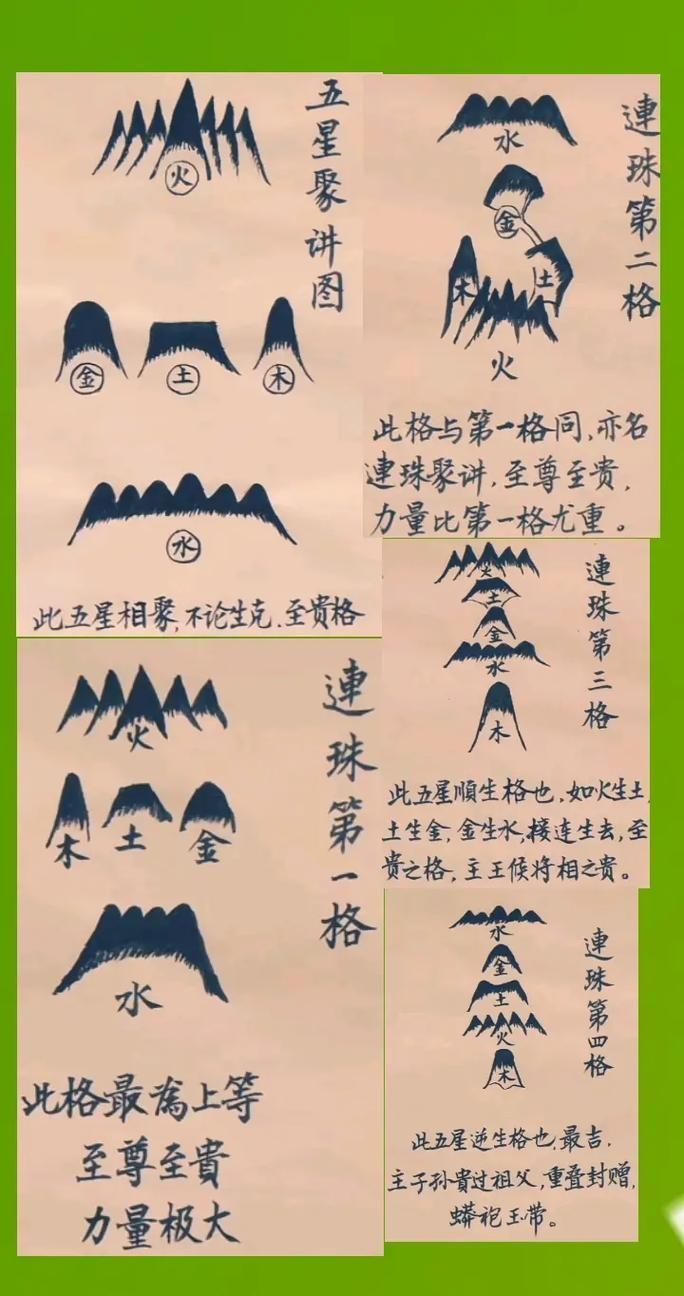 五星聚讲图
火
金 土 木
水
此五星相聚,不论生克.至贵格
連珠第一格
火
木 土 金
水
此格最為上等
至尊至貴
力量极大
連珠第二格
水
金
木 土
火
此格与第一格同,亦名
連珠聚讲,至尊至贵,
力量比第一格尤重。
連珠第三格
火
土
金
水
木
此五星順生格也,如火生土,
土生金,金生水,接连生去,至
贵之格,主王候将相之贵。
連珠第四格
水
金
土
火
木
此五星逆生格也,最吉.
主子孙貴过祖父,重叠封赠,
蟒袍玉带。